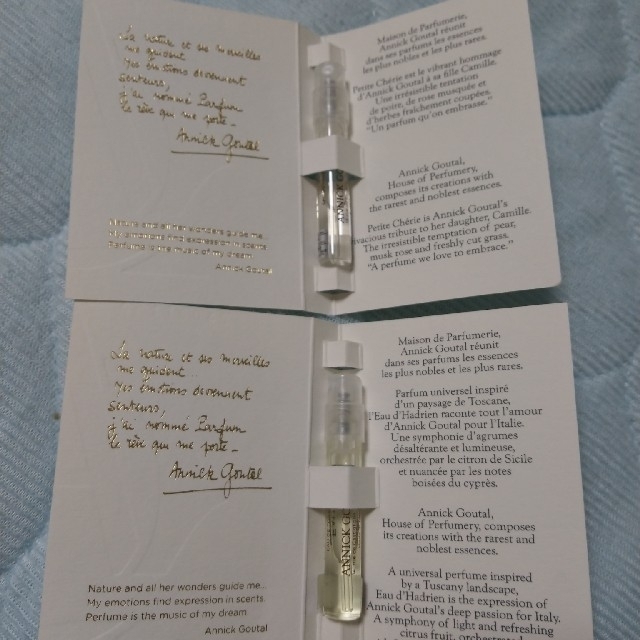 La nature et ses merveilles
me guident...
mes émotions deviennent
senteurs,
j'ai nommé Parfum
le rêve qui me porte_
Annick Goutal
Nature and all her wonders guide me...
My emotions find expression in scents.
Perfume is the music of my dream.
Annick Goutal
ANNICK
Maison de Parfumerie,
Annick Goutal réunit
dans ses parfums les essences
les plus nobles et les plus rares.
Petite Chérie est le vibrant hommage
d'Annick Goutal à sa fille Camille.
Une irrésistible tentation
de poire, de rose musquée et
d'herbes fraîchement coupées.
"Un parfum qu'on embrasse."
Annick Goutal,
House of Perfumery,
composes its creations with
the rarest and noblest essences.
Petite Chérie is Annick Goutal's
vivacious tribute to her daughter, Camille.
The irresistible temptation of pear,
musk rose and freshly cut grass.
"A perfume we love to embrace."
La nature et ses merveilles
me guident...
mes émotions deviennent
senteurs,
j'ai nommé Parfum
le rêve qui me porte_
Annick Goutal
Nature and all her wonders guide me...
My emotions find expression in scents.
Perfume is the music of my dream.
Annick Goutal
ANNICK GO
Maison de Parfumerie,
Annick Goutal réunit
dans ses parfums les essences
les plus nobles et les plus rares.
Parfum universel inspiré
d'un paysage de Toscane,
l'Eau d'Hadrien raconte tout l'amour
d'Annick Goutal pour l'Italie.
Une symphonie d'agrumes
désaltérante et lumineuse,
orchestrée par le citron de Sicile
et nuancée par les notes
boisées du cyprès.
Annick Goutal,
House of Perfumery, composes
its creations with the rarest and
noblest essences.
A universal perfume inspired
by a Tuscany landscape,
Eau d'Hadrien is the expression of
Annick Goutal's deep passion for Italy.
A symphony of light and refreshing
citrus fruit,